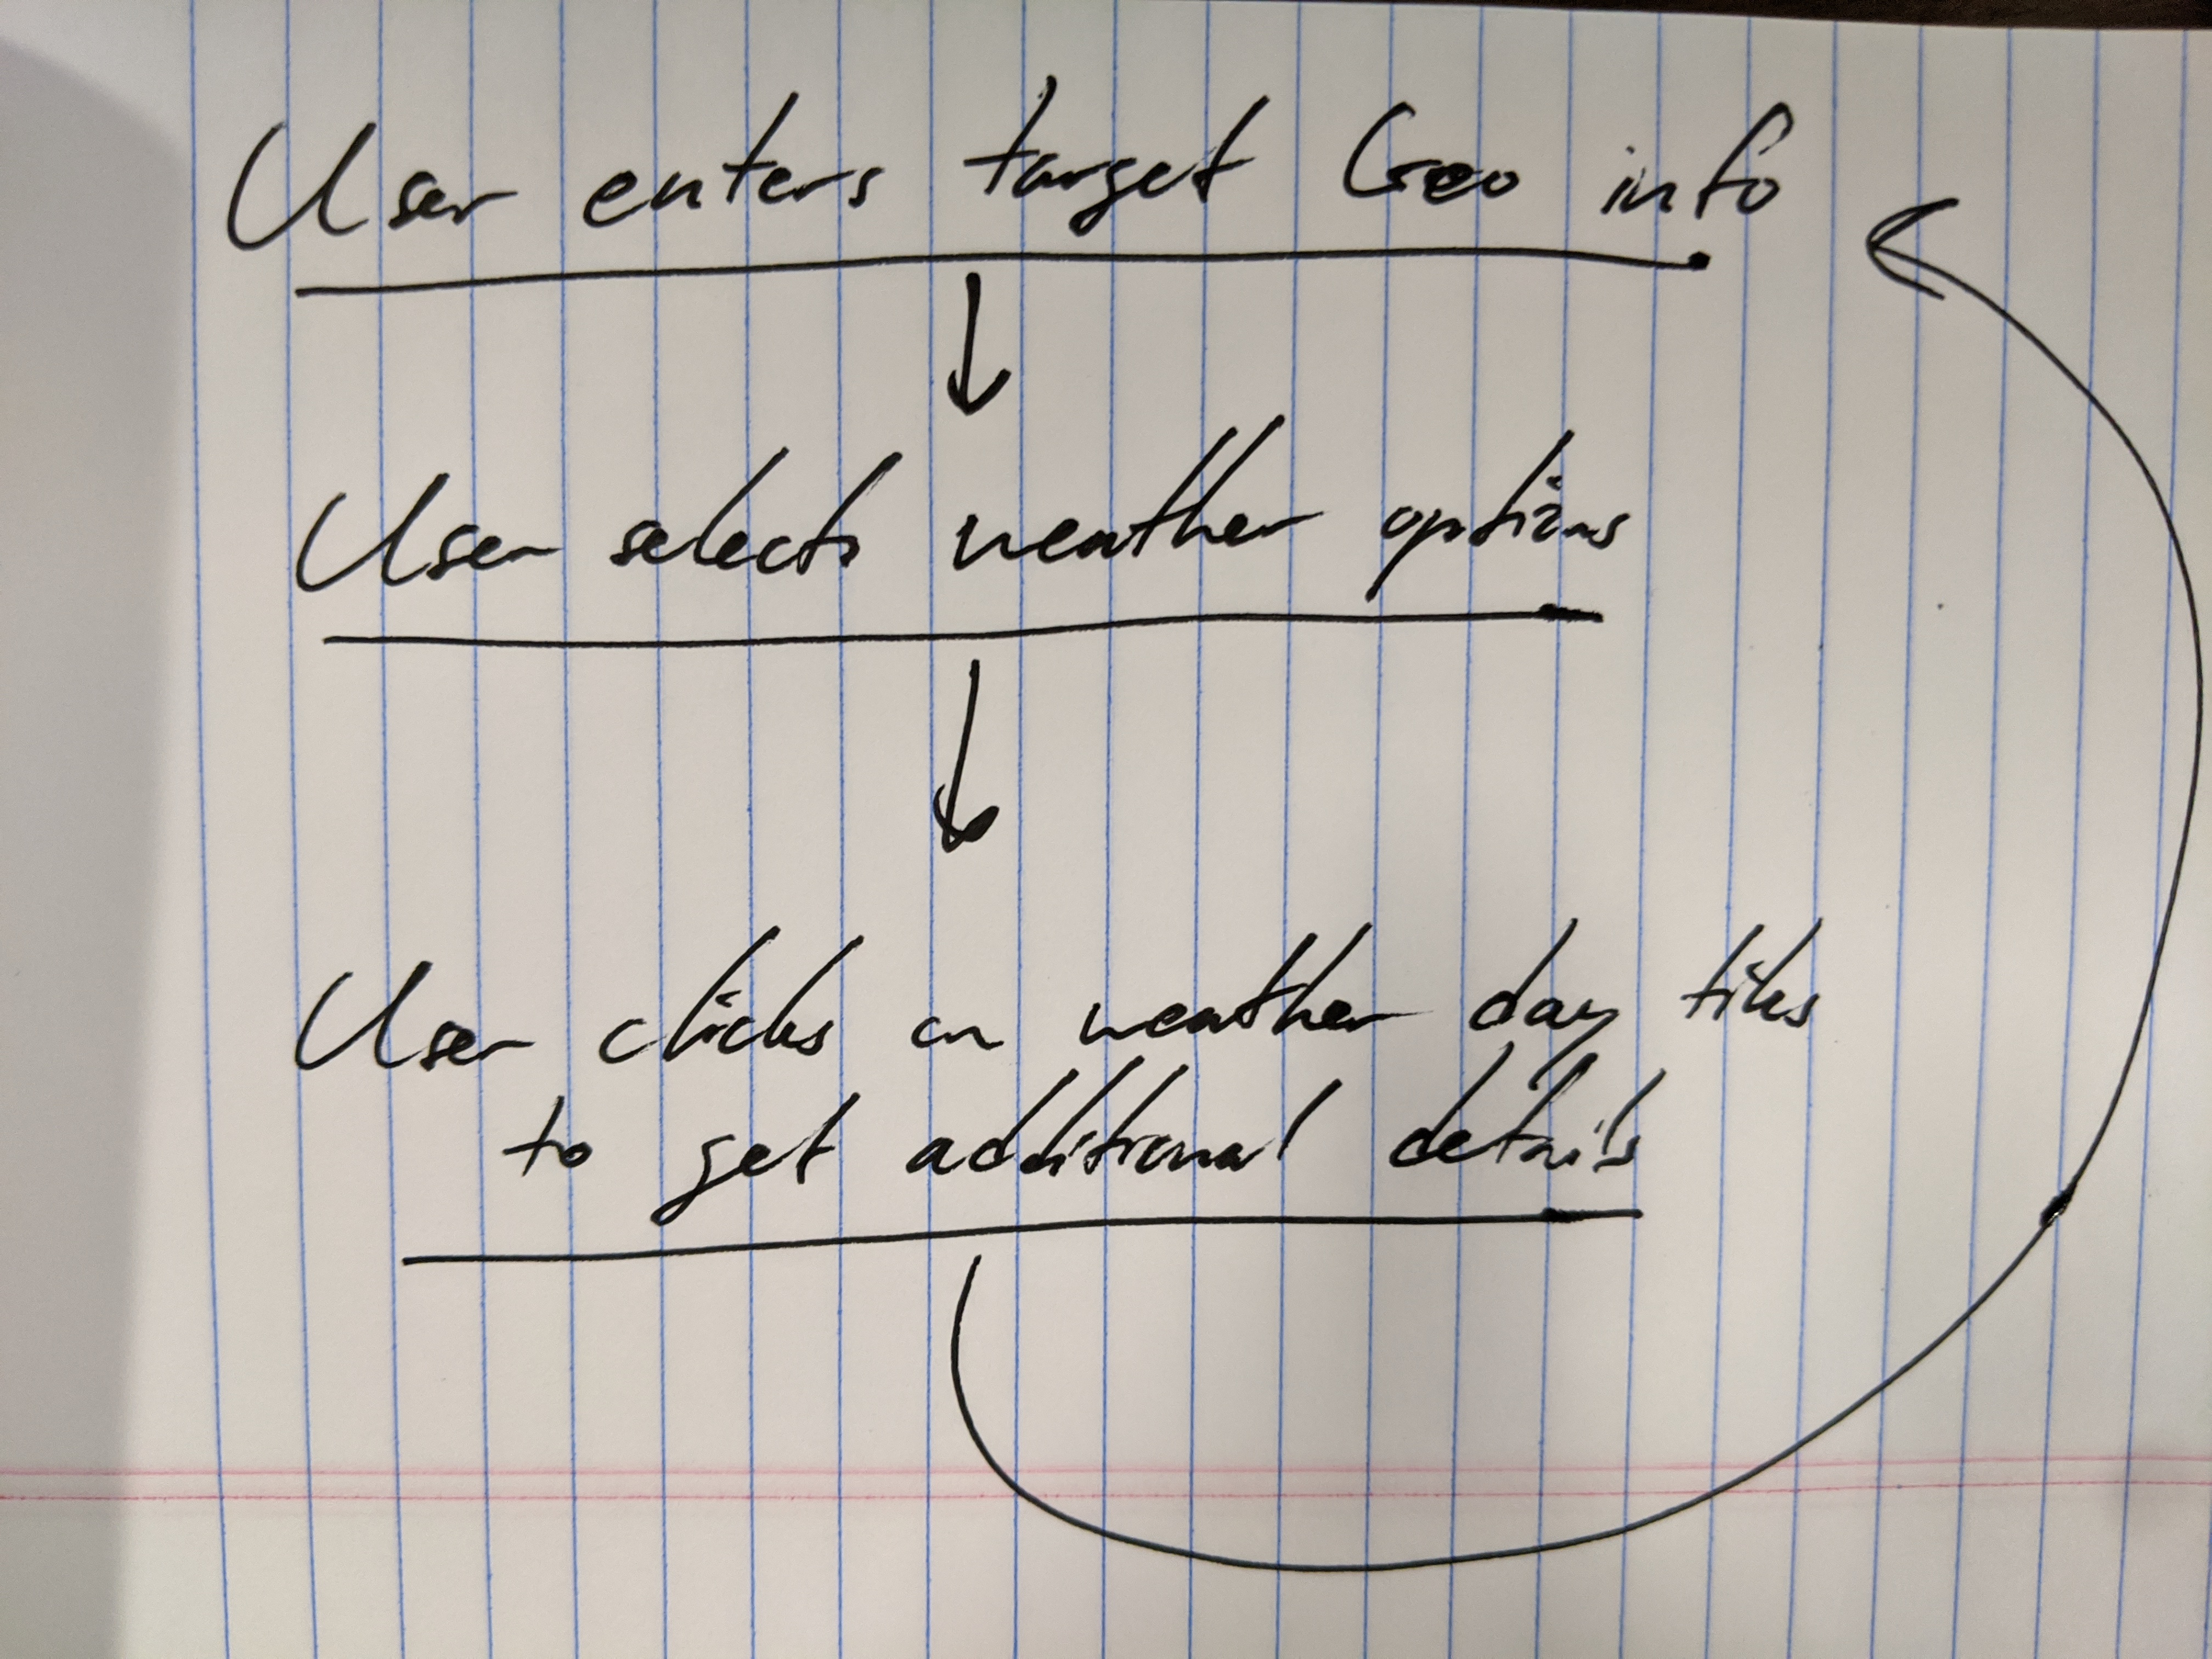 User enters target Geo info
User selects weather options
User clicks on weather day tiles
to get additional details